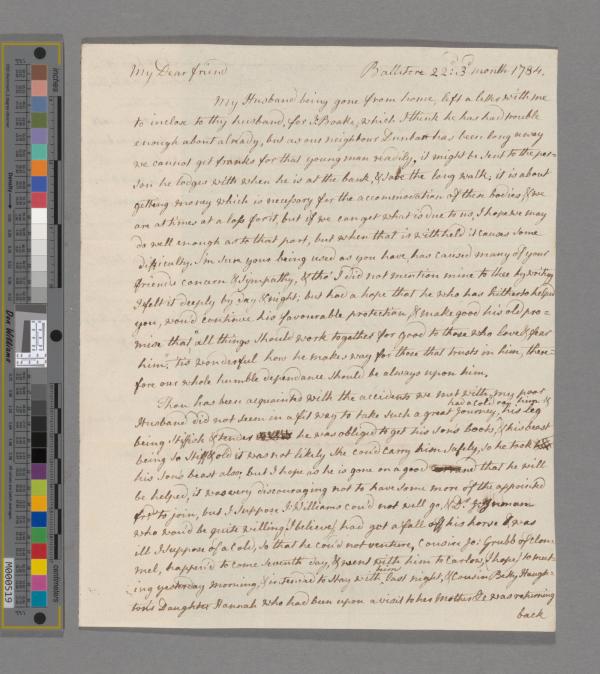 My Dear friend Ballitore 22d: 3d month 1784.
My Husband being gone from home, left a letter with me
to inclose to thy husband, for J: Boake, which I think he has had trouble
enough about already, but as our neighbour Dunbar has been long away
we cannot get franks for that young man readily, it might be sent to the per=
son he lodges with when he is at the bank, & save the long walk, it is about
getting money which is necessary for the accommodation of these bodies, & we
are at times at a loss for it, but if we can get what is due to us, I hope we may
do well enough as to that part, but when that is withheld it causes some
difficulty. I'm sure your being used as you have has caused many of your
friends concern & sympathy, & tho' I did not mention mine to thee by writing
I felt it deeply by day & night; but had a hope that he who has hitherto helped
you, wou'd continue his favourable protection, & make good his old pro=
mise that "all things should work together for good to those who love & fear
him", tis wonderful how he makes way for those that trusts in him, there=
fore our whole humble dependance should be always upon him.
Thou has been acquainted with the accident we met with, my poor
Husband did not seem in a fit way to take such a great Journey, his leg
had a cold say &
being stiffish & tender he was obliged to get his sons boots, & his beast
being so stiff & old it was not likely she could carry him safely, so he took
his sons beast also, but I hope as he is gone on a good that he will
be helped, it was very discouraging not to have some more of the appointed
frds to join, but I suppose J: Williams could not well go, & D:
who wou'd be quite willing I believe, had got a fall off his horse & was
ill I suppose of a cold, so that he could not venture, Cousin Jos: Grubb of Clon=
mel, happen'd to come seventh day, & went with him to Carlow, I hope, to meet=
ing yesterday morning, & intended to stay with him last night, & Cousin Beky Haugh=
ton's Daughter Hannah who had been upon a visit to her Mother & was returning
back
inches
centimeters
Density
Don Williams
M000519